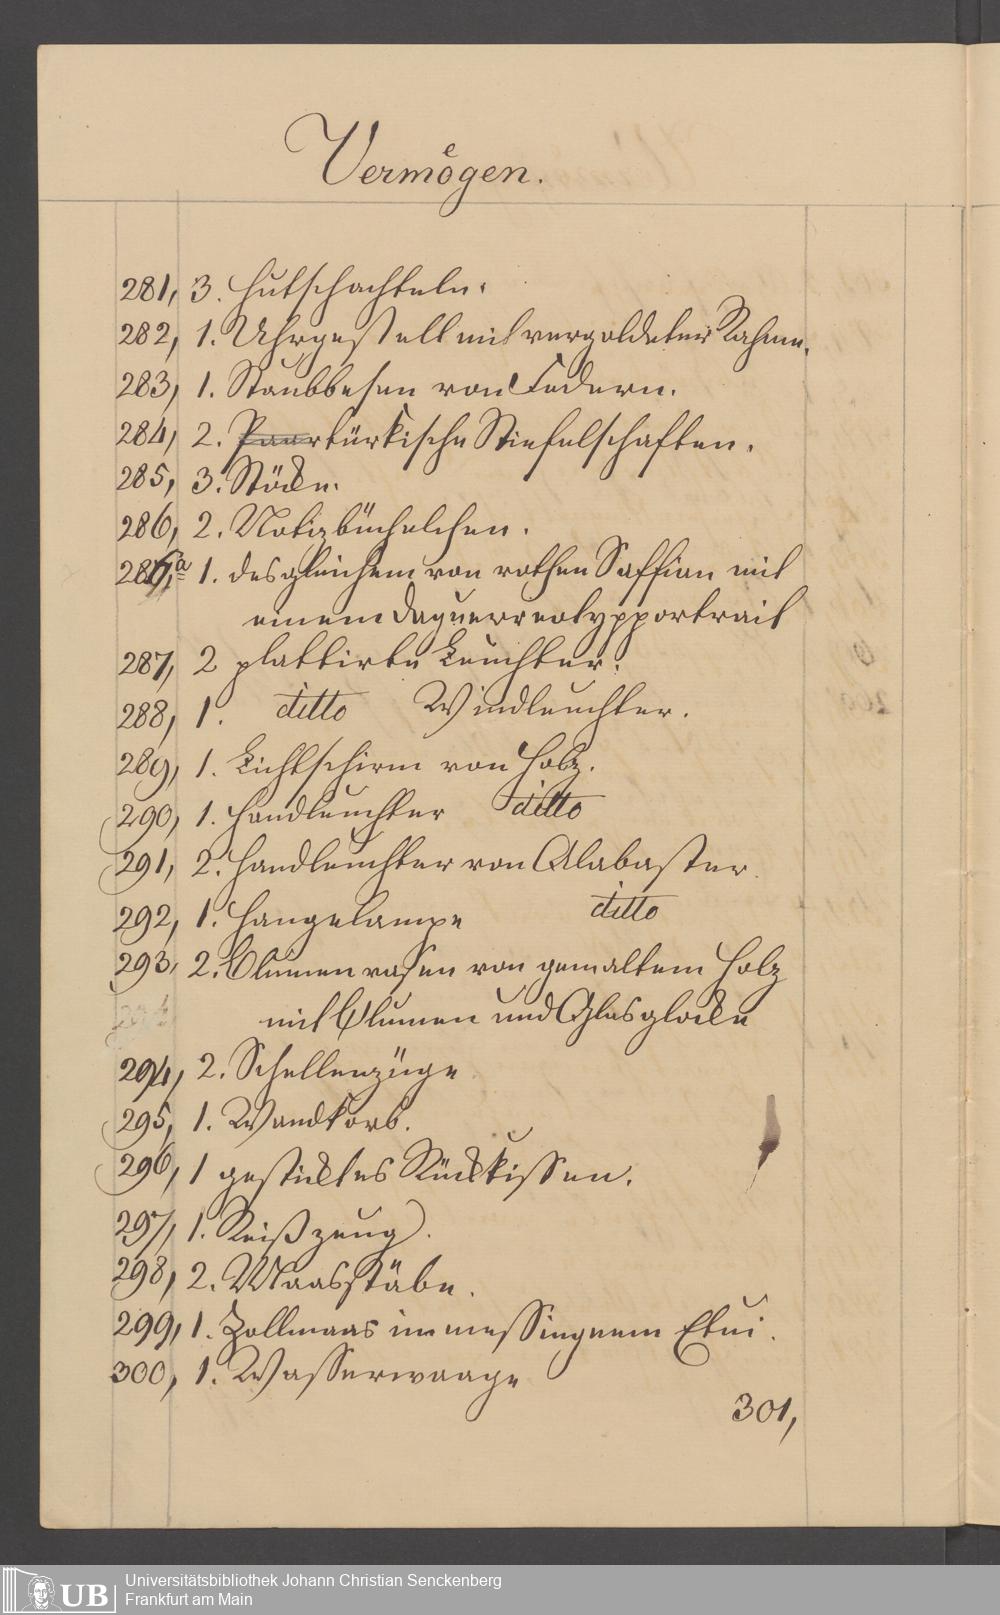 Vermögen.
281, 3. Hutschachteln.
282, 1. Uhrgestell mit vergoldeter Rahme.
283, 1. Staubbesen von Federn.
284, 2. Paar türkische Stiefelschaften.
285, 3. Stöcke.
286, 2. Notizbüchelchen.
286,a 1. desgleichem von rothen Saffian mit
einem Daguerreotypportrait
287, 2 plattirte Leuchter.
288, 1. ditto Windleuchter.
289, 1. Lichtschirm von Holz.
290, 1. Handleuchter ditto
291, 2. Handleuchter von Alabaster.
292, 1. Hangelampe ditto
293, 2. Blumenvasen von gemaltem Holz
mit Blumen und Glasglocke
294, 2. Schellenzüge
295, 1. Wandkorb.
296, 1 gesticktes Rückkissen.
297, 1. Reißzeug.
298, 2. Maasstäbe.
299, 1. Zollmaas im messingnem Etui.
300, 1. Wasserwaage
301,
UB Universitätsbibliothek Johann Christian Senckenberg
Frankfurt am Main